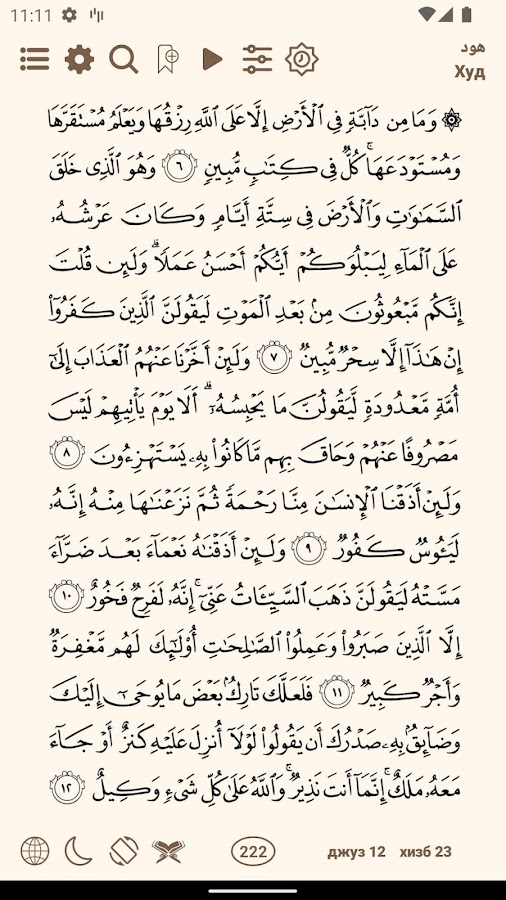 11:11
هود
Худ
۞ وَمَا مِن دَآبَّةٍ فِي ٱلۡأَرۡضِ إِلَّا عَلَى ٱللَّهِ رِزۡقُهَا وَيَعۡلَمُ مُسۡتَقَرَّهَا
وَمُسۡتَوۡدَعَهَاۚ كُلّٞ فِي كِتَٰبٖ مُّبِينٖ ٦ وَهُوَ ٱلَّذِي خَلَقَ
ٱلسَّمَٰوَٰتِ وَٱلۡأَرۡضَ فِي سِتَّةِ أَيَّامٖ وَكَانَ عَرۡشُهُۥ
عَلَى ٱلۡمَآءِ لِيَبۡلُوَكُمۡ أَيُّكُمۡ أَحۡسَنُ عَمَلٗاۗ وَلَئِن قُلۡتَ
إِنَّكُم مَّبۡعُوثُونَ مِنۢ بَعۡدِ ٱلۡمَوۡتِ لَيَقُولَنَّ ٱلَّذِينَ كَفَرُوٓاْ
إِنۡ هَٰذَآ إِلَّا سِحۡرٞ مُّبِينٞ ٧ وَلَئِنۡ أَخَّرۡنَا عَنۡهُمُ ٱلۡعَذَابَ إِلَىٰٓ
أُمَّةٖ مَّعۡدُودَةٖ لَّيَقُولُنَّ مَا يَحۡبِسُهُۥٓۗ أَلَا يَوۡمَ يَأۡتِيهِمۡ لَيۡسَ
مَصۡرُوفًا عَنۡهُمۡ وَحَاقَ بِهِم مَّا كَانُواْ بِهِۦ يَسۡتَهۡزِءُونَ ٨
وَلَئِنۡ أَذَقۡنَا ٱلۡإِنسَٰنَ مِنَّا رَحۡمَةٗ ثُمَّ نَزَعۡنَٰهَا مِنۡهُ إِنَّهُۥ
لَيَـُٔوسٞ كَفُورٞ ٩ وَلَئِنۡ أَذَقۡنَٰهُ نَعۡمَآءَ بَعۡدَ ضَرَّآءَ
مَسَّتۡهُ لَيَقُولَنَّ ذَهَبَ ٱلسَّيِّـَٔاتُ عَنِّيٓۚ إِنَّهُۥ لَفَرِحٞ فَخُورٌ ١٠
إِلَّا ٱلَّذِينَ صَبَرُواْ وَعَمِلُواْ ٱلصَّٰلِحَٰتِ أُوْلَٰٓئِكَ لَهُم مَّغۡفِرَةٞ
وَأَجۡرٞ كَبِيرٞ ١١ فَلَعَلَّكَ تَارِكُۢ بَعۡضَ مَا يُوحَىٰٓ إِلَيۡكَ
وَضَآئِقُۢ بِهِۦ صَدۡرُكَ أَن يَقُولُواْ لَوۡلَآ أُنزِلَ عَلَيۡهِ كَنزٌ أَوۡ جَآءَ
مَعَهُۥ مَلَكٌۚ إِنَّمَآ أَنتَ نَذِيرٞۚ وَٱللَّهُ عَلَىٰ كُلِّ شَيۡءٖ وَكِيلٌ ١٢
222 джуз 12 хизб 23